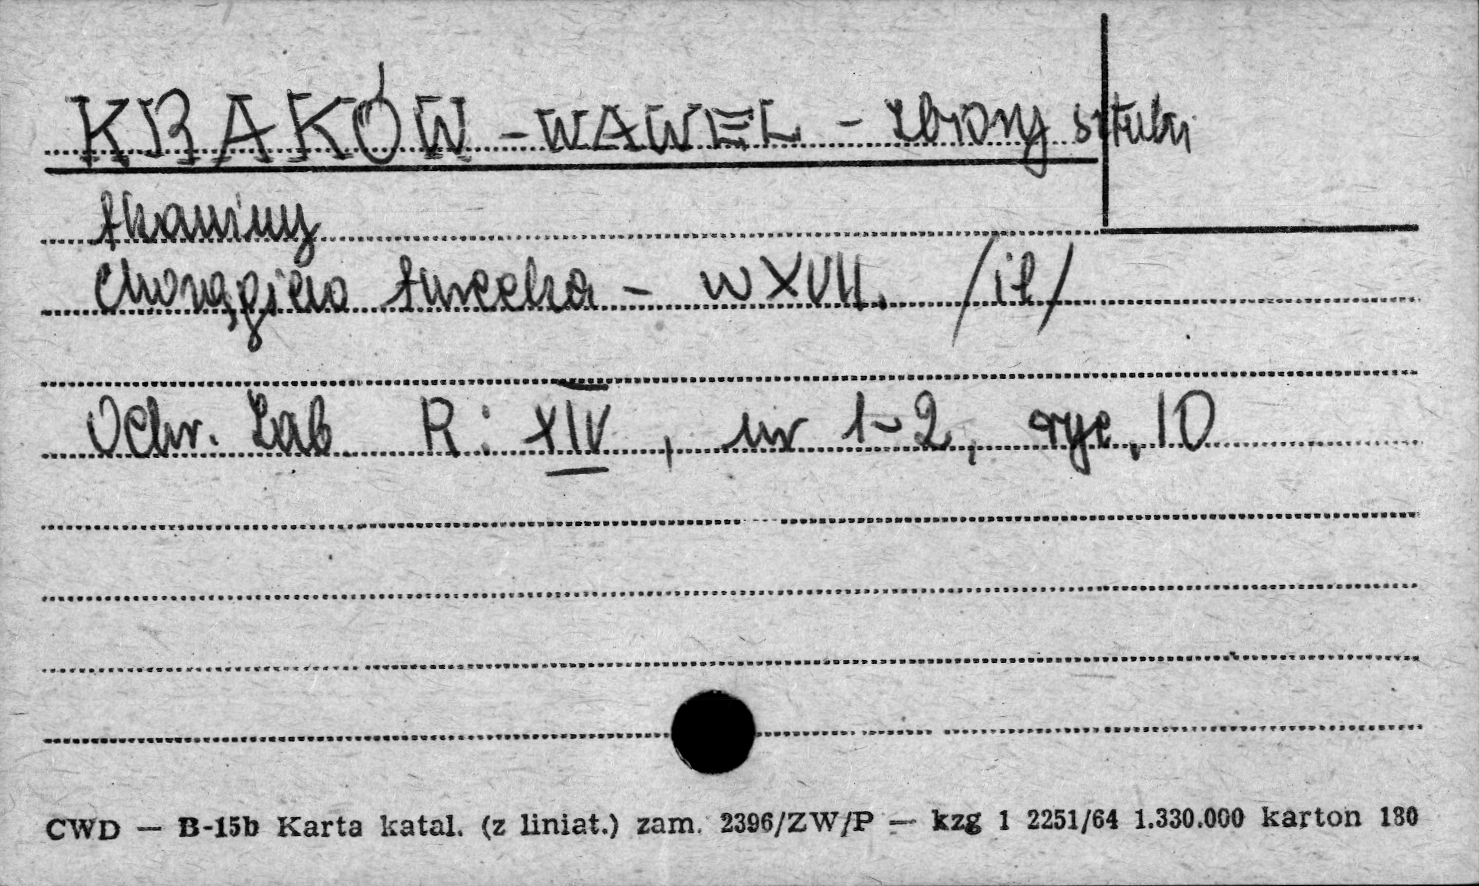 KRAKÓW - WAWEL - zbiory sztuki
tkaniny
chorągiew turecka - w XVII. /il/
Ochr. Zab. R: XIV, nr 1-2, ryc. 10
CWD — B-15b Karta katal. (z liniat.) zam. 2396/ZW/P — kzg 1 2251/64 1.330.000 karton 180